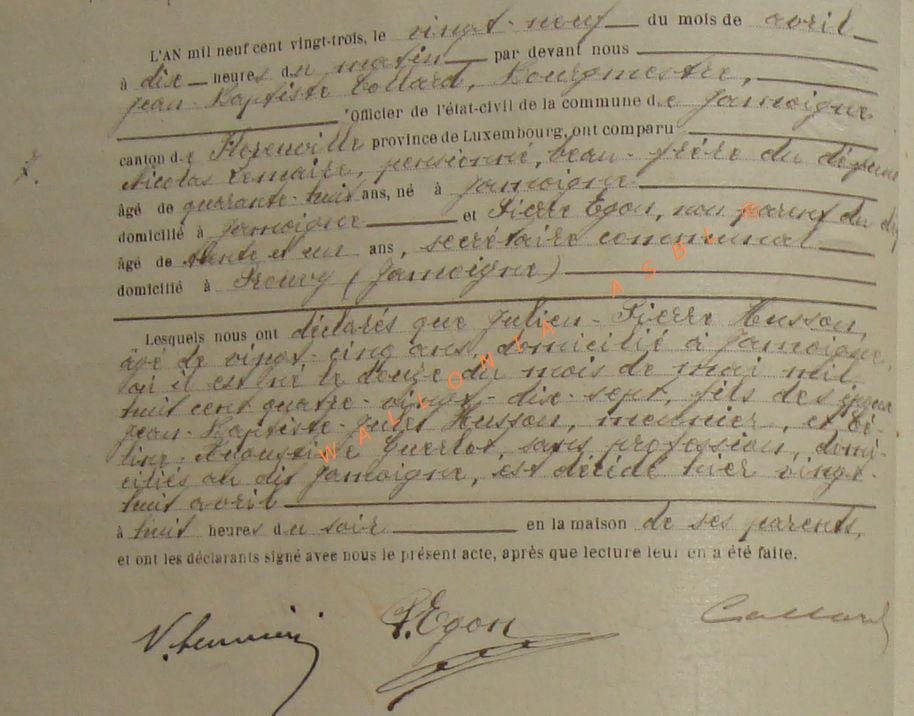 L'AN mil neuf cent vingt-trois, le vingt-neuf du mois de avril
à dix heures du matin par devant nous
Jean-Baptiste Collard, Bourgmestre,
Officier de l'état-civil de la commune de Jamoigne
canton de Florenville province de Luxembourg, ont comparu
Nicolas Lemaire, pensionné, beau-frère du défunt
âgé de quarante-huit ans, né à Jamoigne
domicilié à Jamoigne et Pierre Egon, non parent du
âgé de trente et un ans, secrétaire communal
domicilié à Prouvy (Jamoigne)
Lesquels nous ont déclarés que Julien-Pierre Husson,
âgé de vingt-cinq ans, domicilié à Jamoigne,
où il est né le douze du mois de mai mil
huit cent quatre-vingt-dix-sept, fils des époux
Jean-Baptiste-Jules Husson, meunier, et
Augustine Guerlot, sans profession, domi-
ciliés au dit Jamoigne, est décédé hier vingt-
huit avril
à huit heures du soir en la maison de ses parents,
et ont les déclarants signé avec nous le présent acte, après que lecture leur en a été faite.
P. Egon Collard
WALLONIA ASBL ©